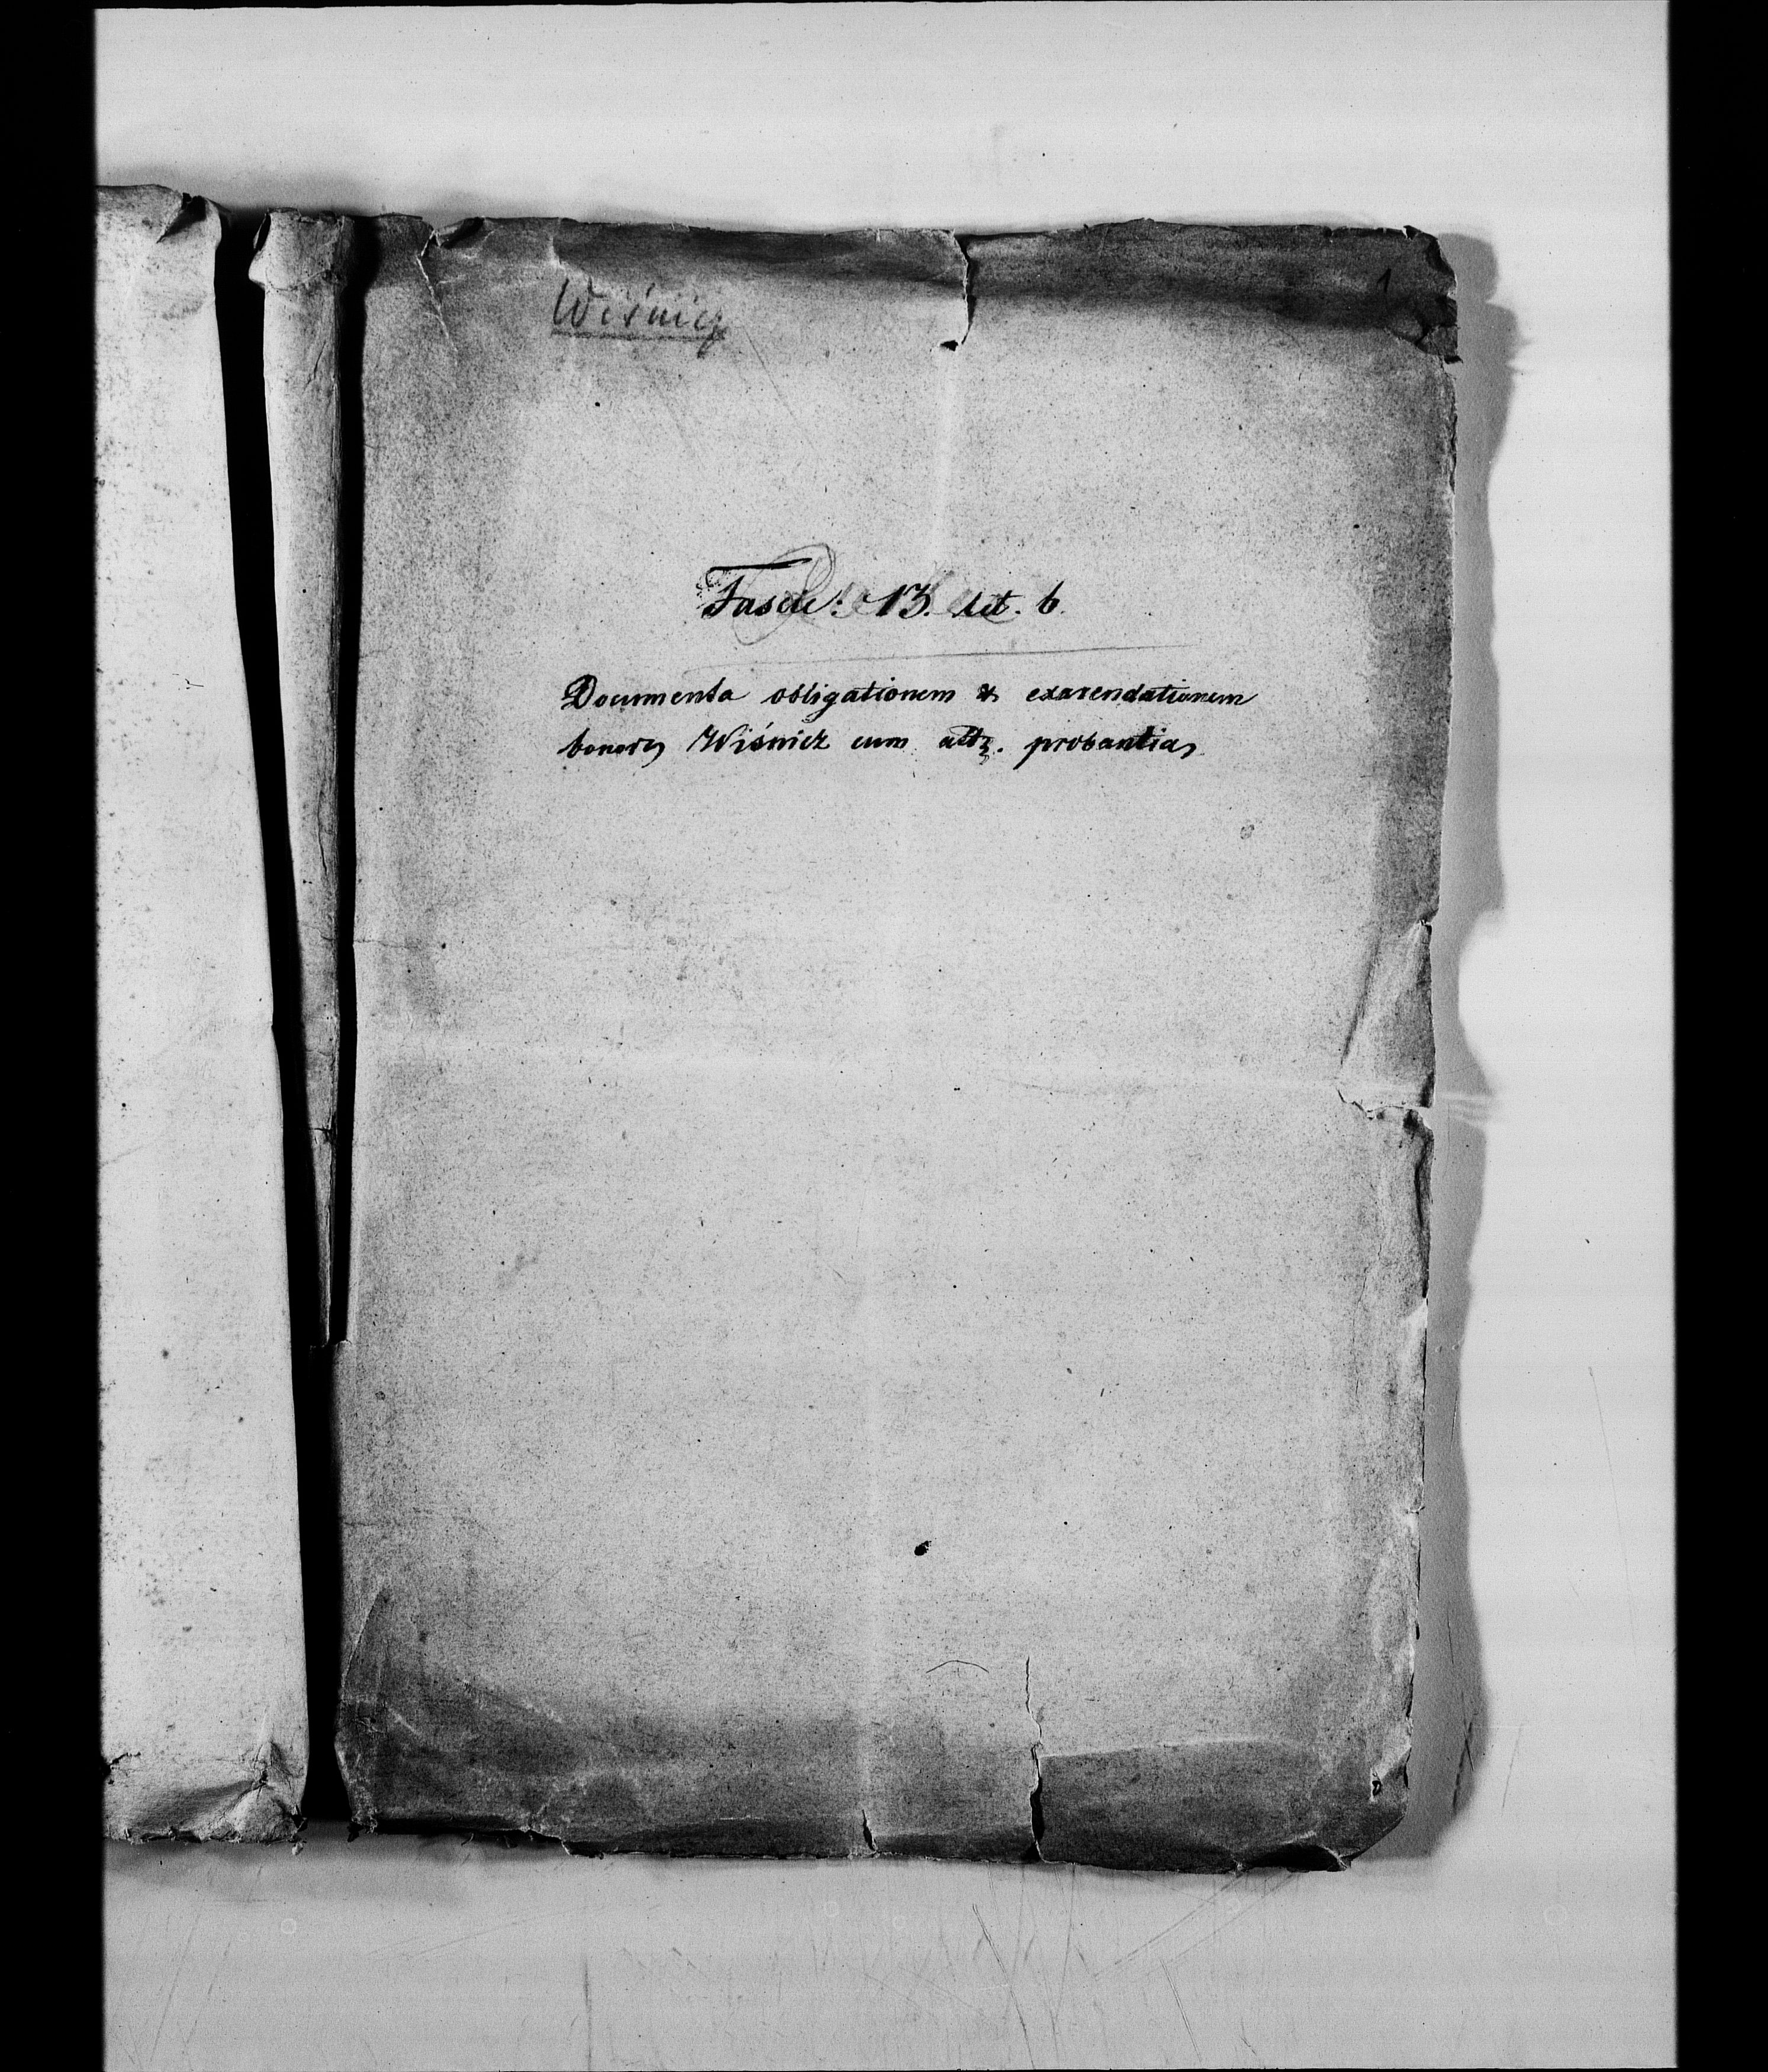 1
Wiśnicz
Fasck: 13. Lit. b.
Documenta obligationem & exarendationem
bonorꝫ Wiśnicz cum attꝫ. probantia,